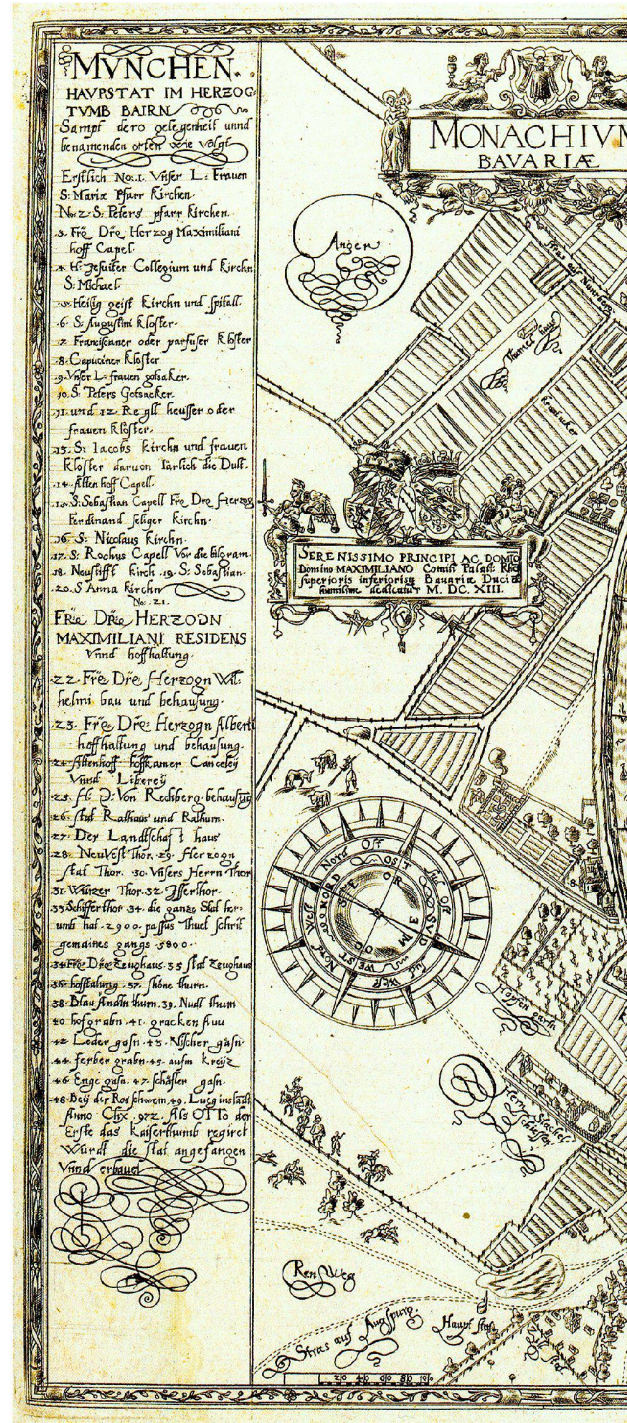 MVNCHEN.
HAVPSTAT IM HERZOG-
TVMB BAIRN
Sampt dero gelegenheit unnd
benamenden orten wie volgt
Erstlich No: 1. Unser L: Frauen
S: Mariæ Pfarr Kirchen.
No: 2. S: Peters pfarr Kirchen.
3. Fre Dre Herzog Maximiliani
hoff Capel.
4. H: Jesuiter Collegium und Kirchn
S: Michael.
5. Heilig geist Kirchn und spitall.
6. S: Augustini Kloster.
7. Franciscaner oder parfuser Kloster
8. Capuciner Kloster
9. Vnser L: frauen gotsaker.
10. S: Peters Gotsacker.
11. und 12. Regll heusser oder
frauen Kloster.
13. S: Iacobs Kirchn und frauen
Kloster daruon Iarlich die Dult.
14. Alten hoff Capell.
15. S: Sebastian Capell Fre Dre Herzog
Ferdinand seliger Kirchn.
16. S: Nicolaus Kirchn.
17. S: Rochus Capell Vor die bilgram.
18. Neustifft Kirch. 19. S: Sebastian.
20. S Anna Kirchn
No: 21.
FRE DRE HERZOGN
MAXIMILIANI RESIDENS
Vnnd hoffhaltung.
22. Fre Dre Herzogn Wil:
helmi bau und behausung.
23. Fre Dre: Herzogn Alberti
hoffhaltung und behausung.
24. Altenhoff hoffkamer Canceley
Vnnd Liberey
25. H: D: Von Rechberg behausung
26. stat Rathaus und Rathurn.
27. Der Landtschaft haus
28. NeuVest Thor. 29. Herzogn
stat Thor. 30. Vnsers Herrn Thor
31. Wurzer Thor. 32. Isserthor.
33. Schifferthor 34. die ganze Stat her-
umb hat. 2900. passus Thuet schrit
gemaines gangs 5800.
34. Fre Dre Zeughaus. 35 stat Zeughaus
36. hofstalung. 37. shöne thurn.
38. Blau Andn thurn. 39. Nudl thurn
40 hofgrabn. 41. gracken Auu
42 Leder gasn. 43. Nischer gasn
44. ferber grabn. 45. aufm Kreijz
46 Enge gasn. 47. schäfler gasn
48. Beij der Rosschwem. 49. Lueg inslandt
Anno Chr. 972. Als OTTO der
Erste das Kaiserthumb regiret
Würdt die stat angefangen
Vnnd erbauet
MONACHIVM
BAVARIÆ
Anger
Stras auf Nurnberg
SERENISSIMO PRINCIPI AC DOMIO
Domino MAXIMILIANO Comiti Palati: Rhe
superioris inferiorisq Bauariæ Duci &
humilime dedicatur M. DC. XIII.
Nord Ost
OST
Sud Ost
SVD
Sud West
WEST
Nord West
NORD
Hopfen garten
Herrn Stachel
schiessen
Ren Weg
Stras auf Augspurg.
Haupt stat
20 40 60 80 101